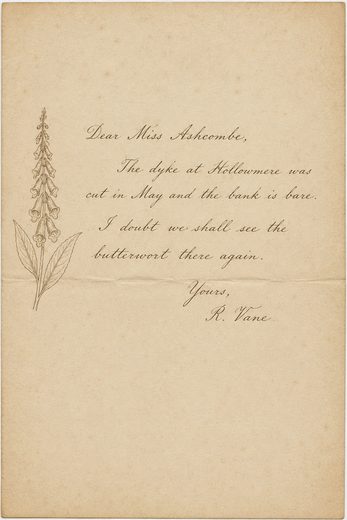 Dear Miss Ashcombe,
The dyke at Hollowmere was
cut in May and the bank is bare.
I doubt we shall see the
butterwort there again.
Yours,
R. Vane